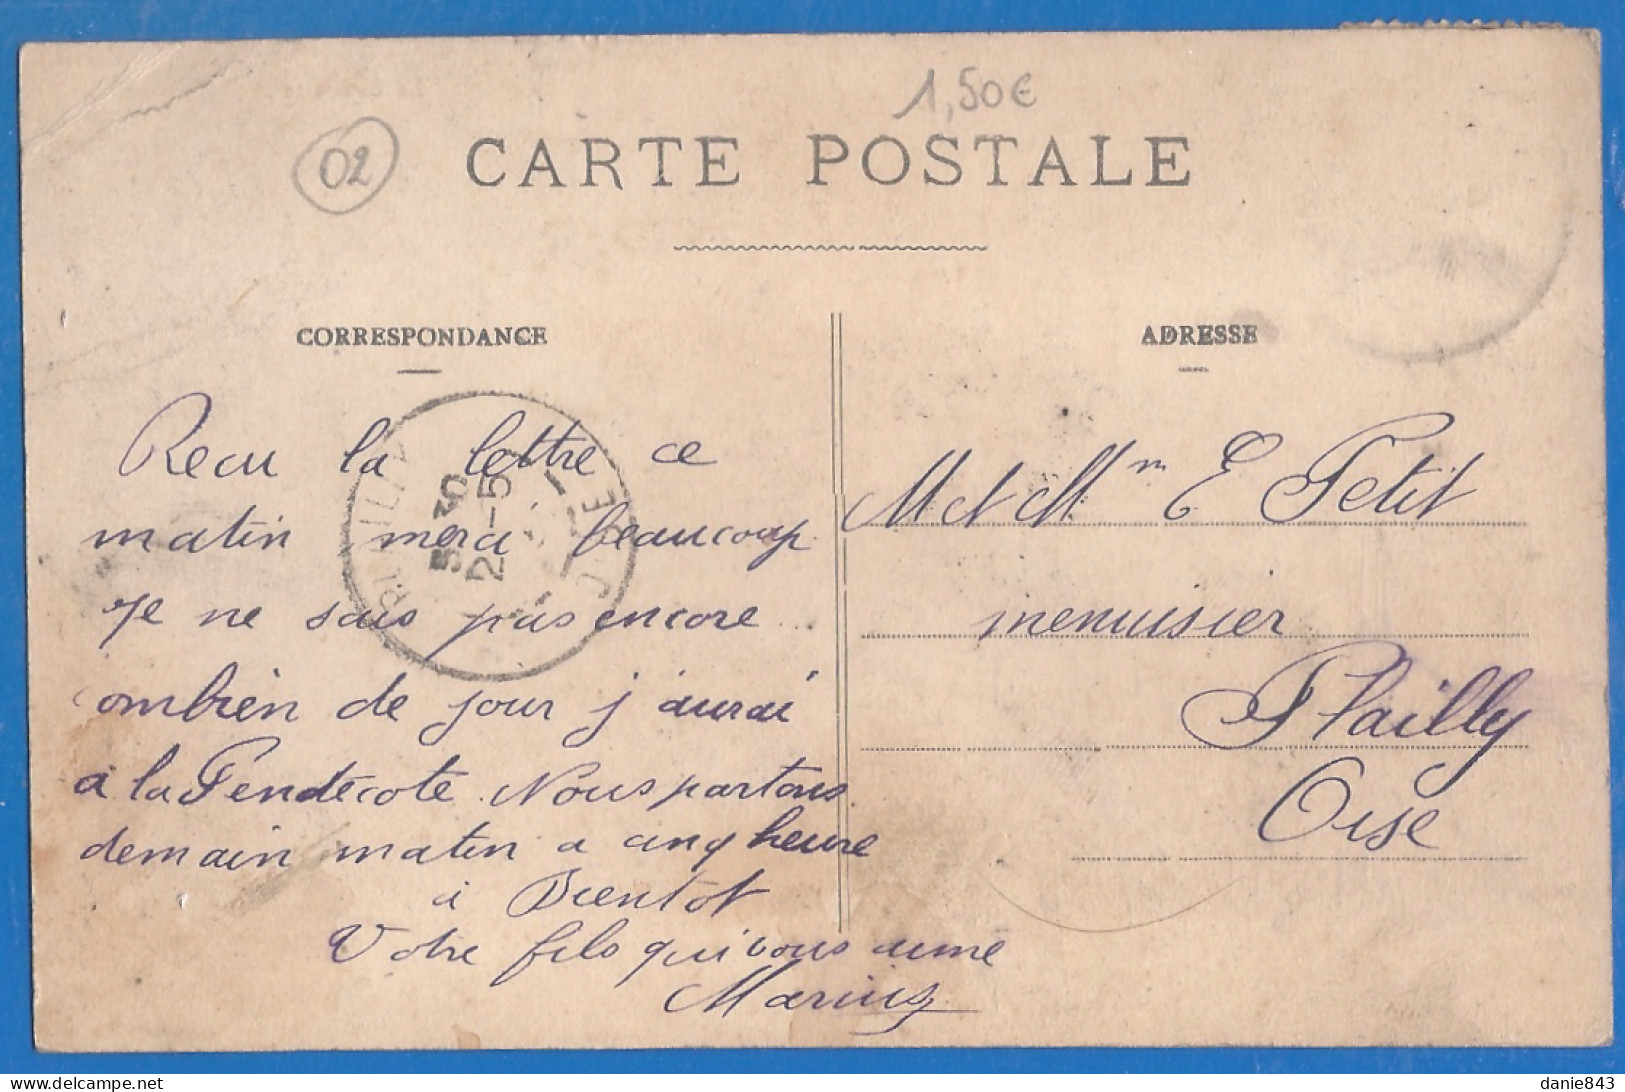 1,50€
02
CARTE POSTALE
CORRESPONDANCE
Recu la lettre ce
matin merci beaucoup
Je ne sais pas encore
ombien de jour j'aurai
a la Pendecote. Nous partons
demain matin a cinq heure
a Bientot
Votre fils qui vous aime
Marius
ADRESSE
M et Mm E Petit
menuisier
Plailly
Oise
5-30
OISE
www.delcampe.net
danie843